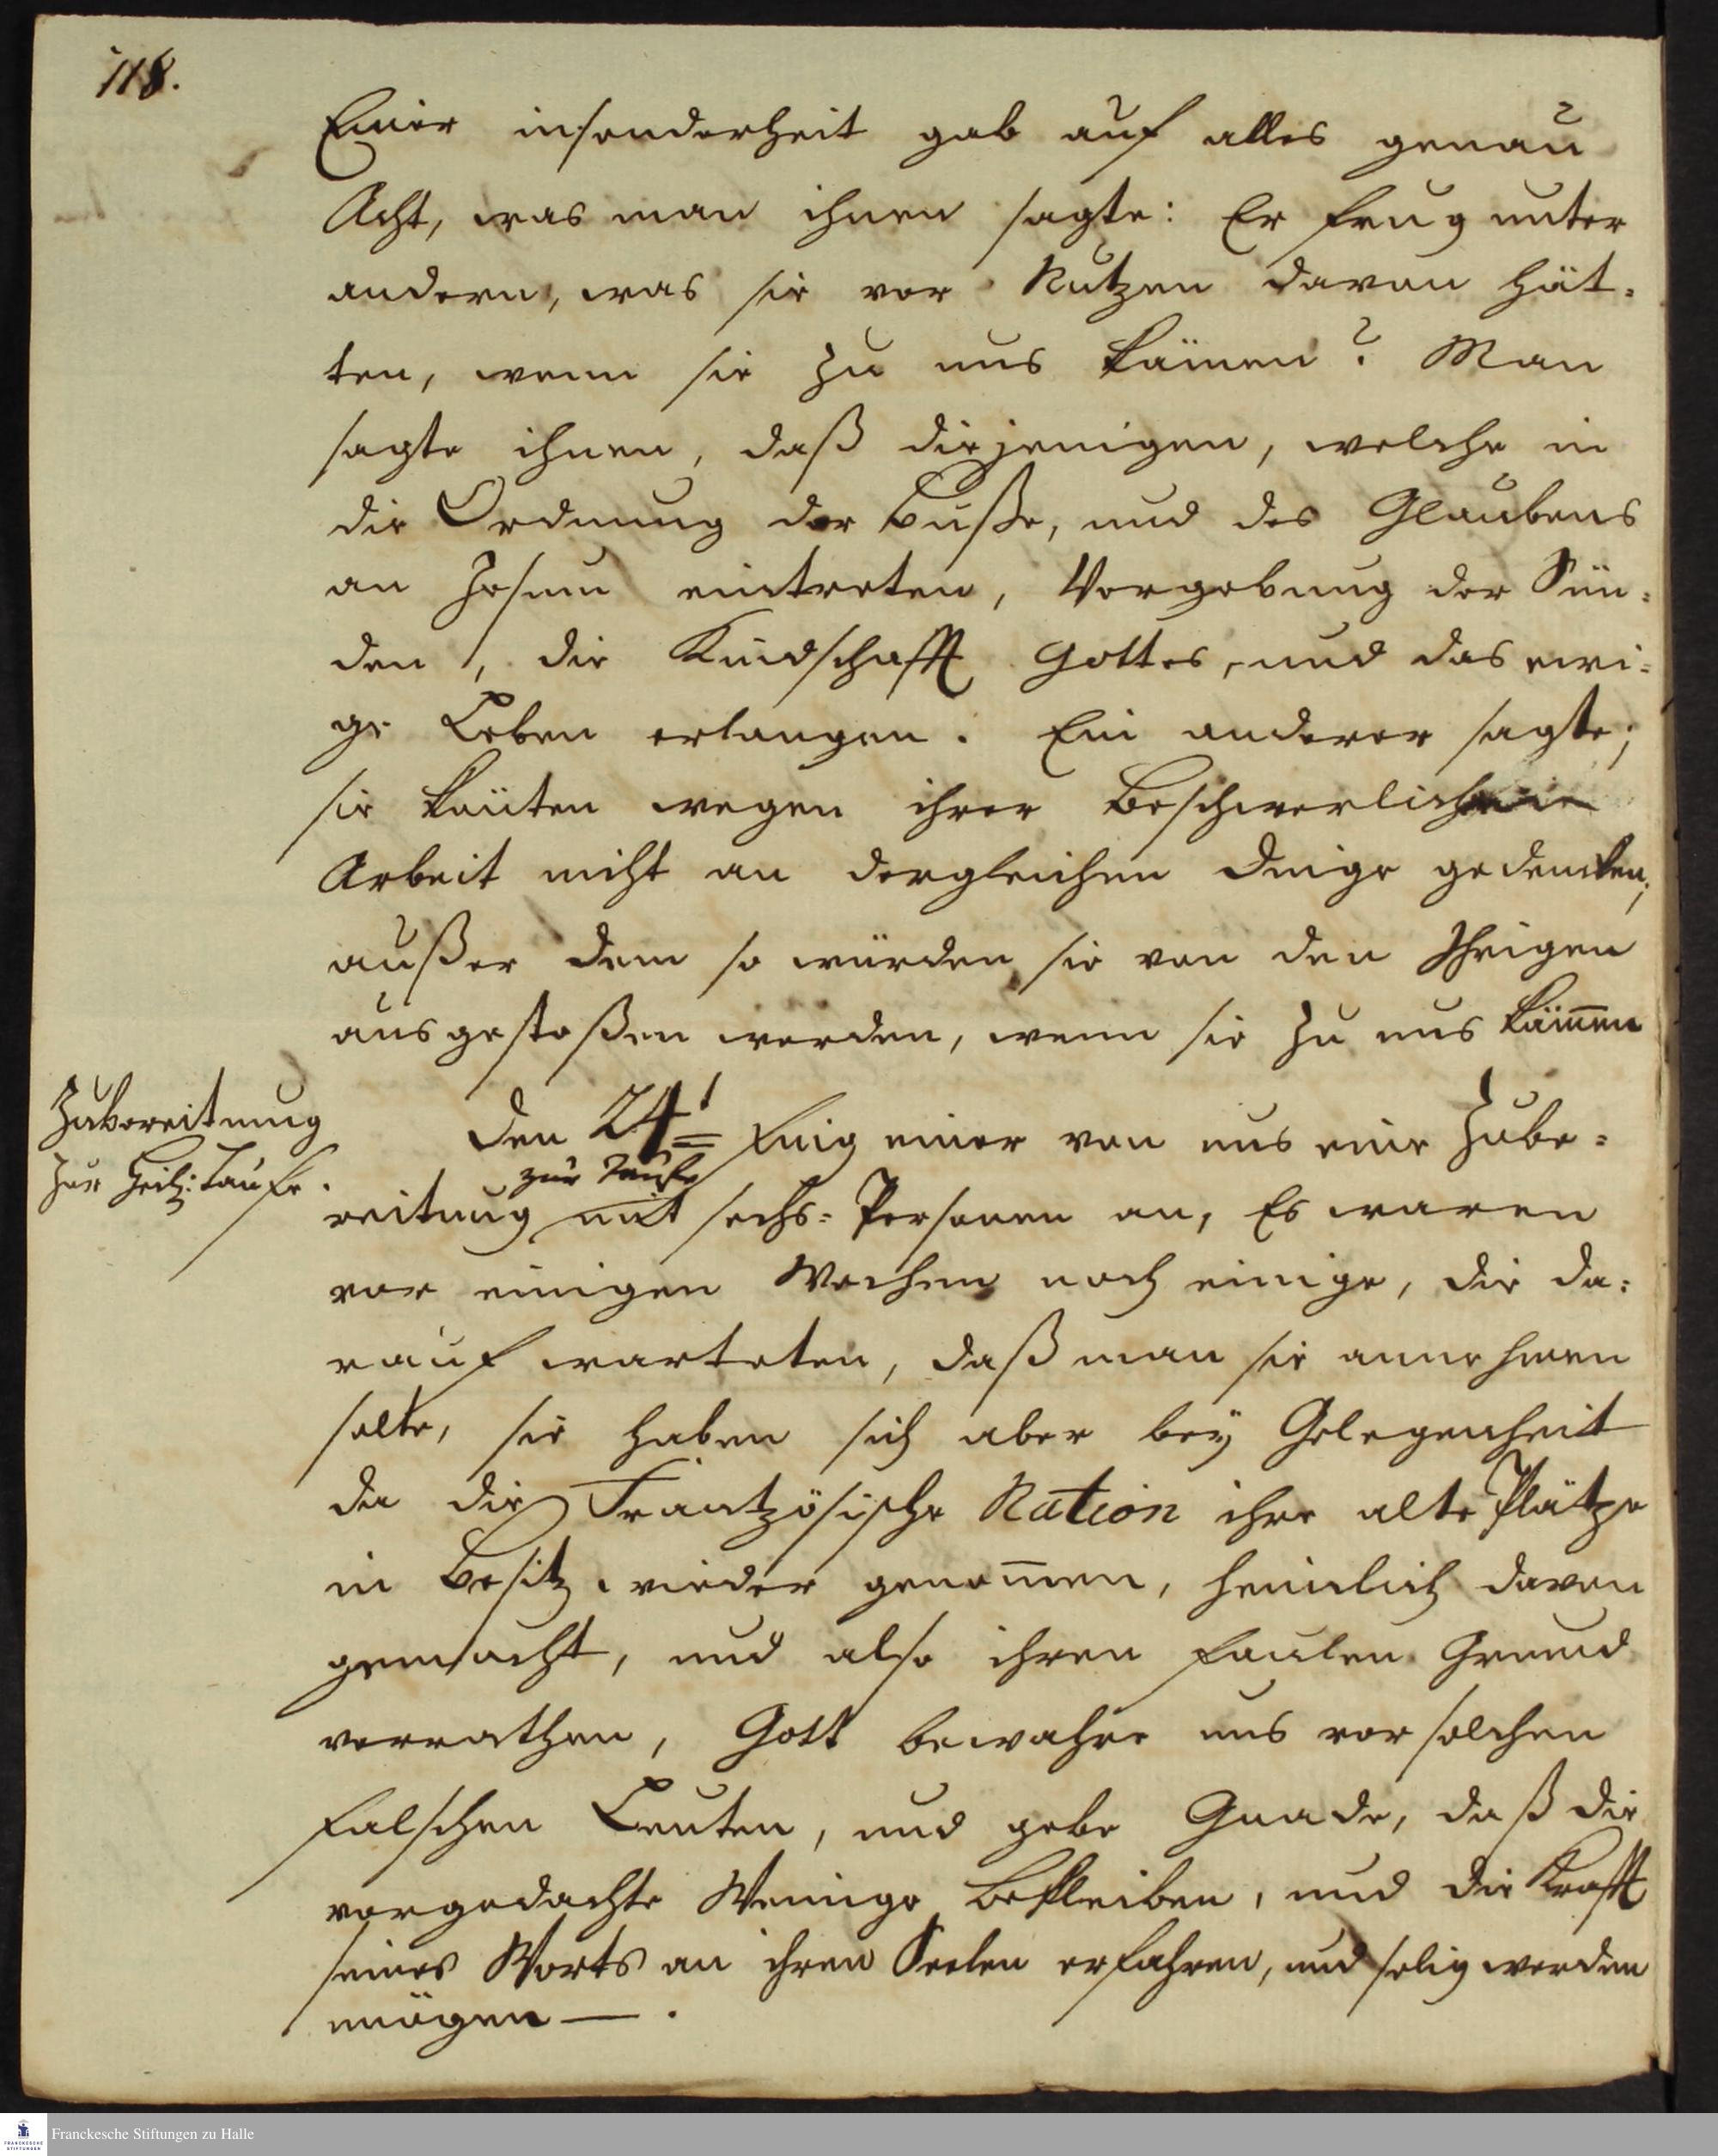 118.
Einer insonderheit gab auf alles genau
Acht, was man ihnen sagte: Er frug unter
andern, was sie vor Nutzen davon hät-
ten, wenn sie zu uns kämen? Man
sagte ihnen, daß diejenigen, welche in
die Ordnung der Buße, und des Glaubens
an Jesum eintreten, Vergebung der Sün-
den, die Kindschafft Gottes, und das ewi-
ge Leben erlangen. Ein anderer sagte;
sie könten wegen ihrer Beschwerlichen
Arbeit nicht an dergleichen Dinge gedencken;
außer dem so würden sie von den Ihrigen
ausgestoßen werden, wenn sie zu uns kämen
Zubereitung
zur Heil: Taufe.
Den 24t Fing einer von uns eine Zube-
zur Taufe
reitung mit sechs Personen an, Es waren
vor einigen Wochen noch einige, die da-
rauf warteten, daß man sie annehmen
solte, sie haben sich aber bey Gelegenheit
da die Frantzösische Nation ihre alte Plätze
in Besitz wieder genom̄en, heimlich davon
gemacht, und also ihren faulen Grund
verrathen, Gott bewahre uns vor solchen
falschen Leuten, und gebe Gnade, daß die
vorgedachte Wenige bekleiben, und die Krafft
seines Worts an ihren Seelen erfahren, und selig werden
mögen —.
Franckesche Stiftungen zu Halle
FRANCKESCHE
STIFTUNGEN